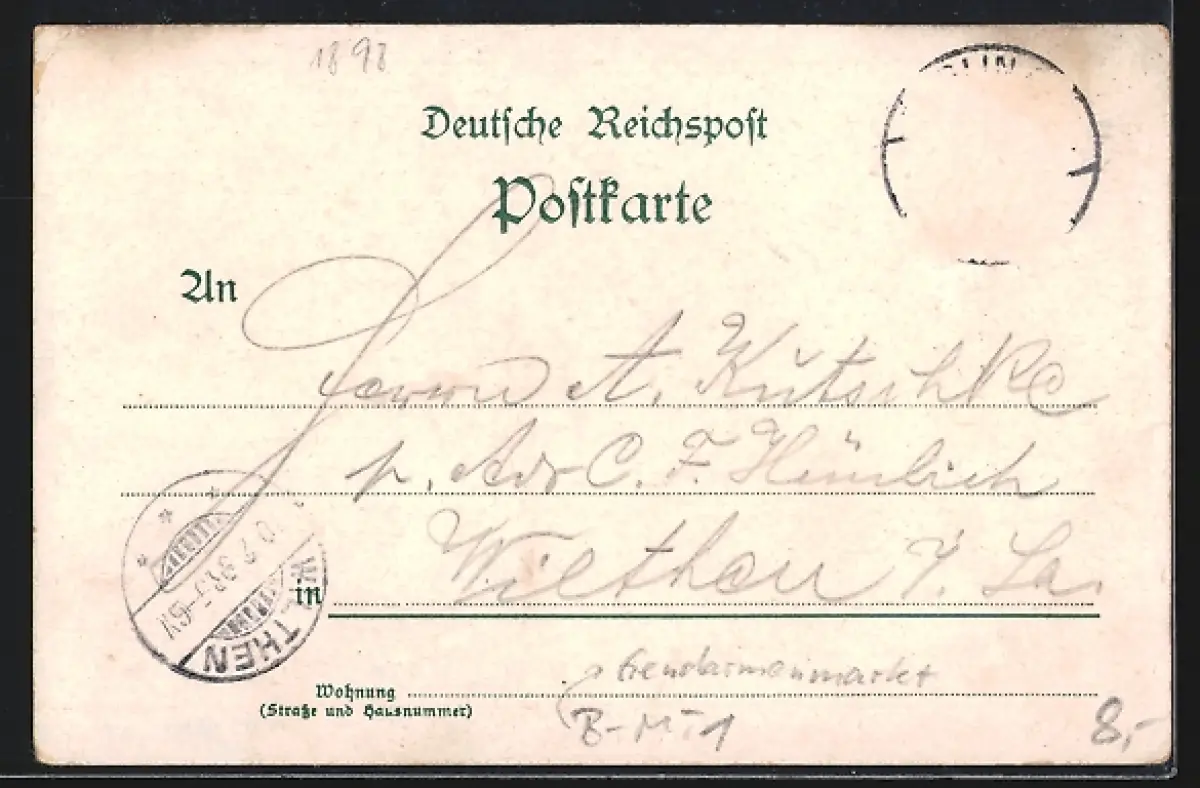 1898
Deutsche Reichspost
Postkarte
An
Herrn A. Kutschke
p. Adr C. F. Hünlich
in Wilthen i. Sa.
WILTHEN
Wohnung
(Straße und Hausnummer)
Gendarmenmarkt
B-MT1
8,-